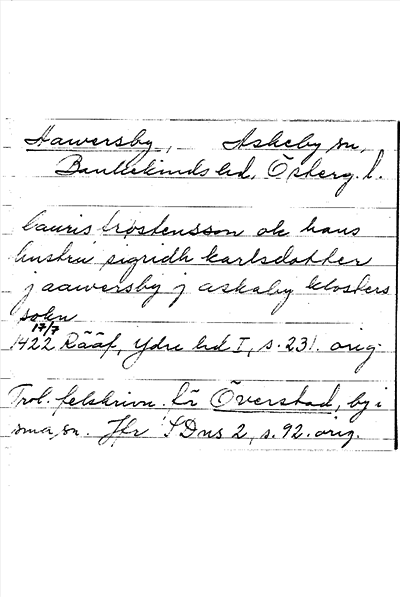 Hawersby, Askeby sn,
Bankekinds hd, Österg. l.
lauris trostensson ok hans
hustru sigridh karlsdotter
j aawersby j askaby klosters
sokn
17/7
1422 Rääf, Ydre hd I, s. 231. orig.
Trol. felskrivn. för Överstad, by i
sma, sn. Jfr SDns 2, s. 92. orig.